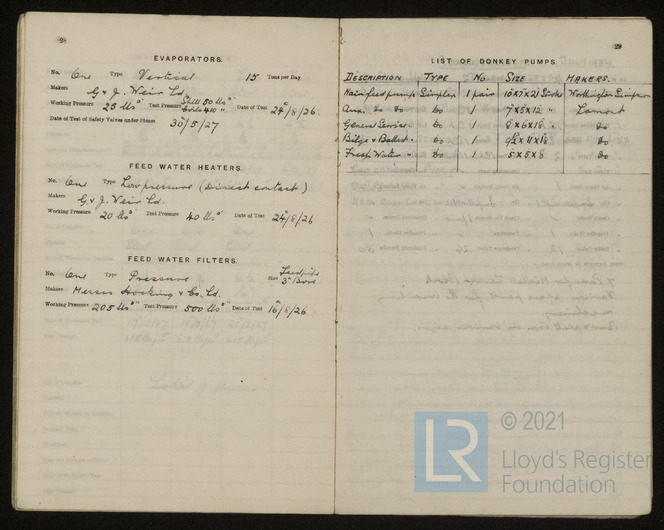 28
EVAPORATORS.
No. One Type Vertical 15 Tons per Day
Makers G & J. Weir Ld
Working Pressure 25 lbs□" Test Pressure Shell 50 lbs□" Coils 410 " Date of Test 24/8/26.
Date of Test of Safety Valves under Steam 30/5/27
FEED WATER HEATERS.
No. One Type Low pressure (Direct contact)
Makers G & J. Weir Ld.
Working Pressure 20 lbs□" Test Pressure 40 lbs□" Date of Test 24/8/26
FEED WATER FILTERS.
No. One Type Pressure Size 3" Bore
Makers Messrs Hocking & Co. Ld.
Working Pressure 205 lbs□" Test Pressure 500 lbs□" Date of Test 16/8/26
29
LIST OF DONKEY PUMPS.
DESCRIPTION TYPE No SIZE MAKERS.
Main feed pump Simplex 1 pair 10x7x21 Stroke Worthington Simpson
Aux. do do do 1 7x5x12 " Lamont
General Service do 1 8x6x18 " do
Bilge & Ballast do 1 9½x11x18 do
Fresh Water do 1 5x5x8 do
LR
© 2021
Lloyd's Register
Foundation